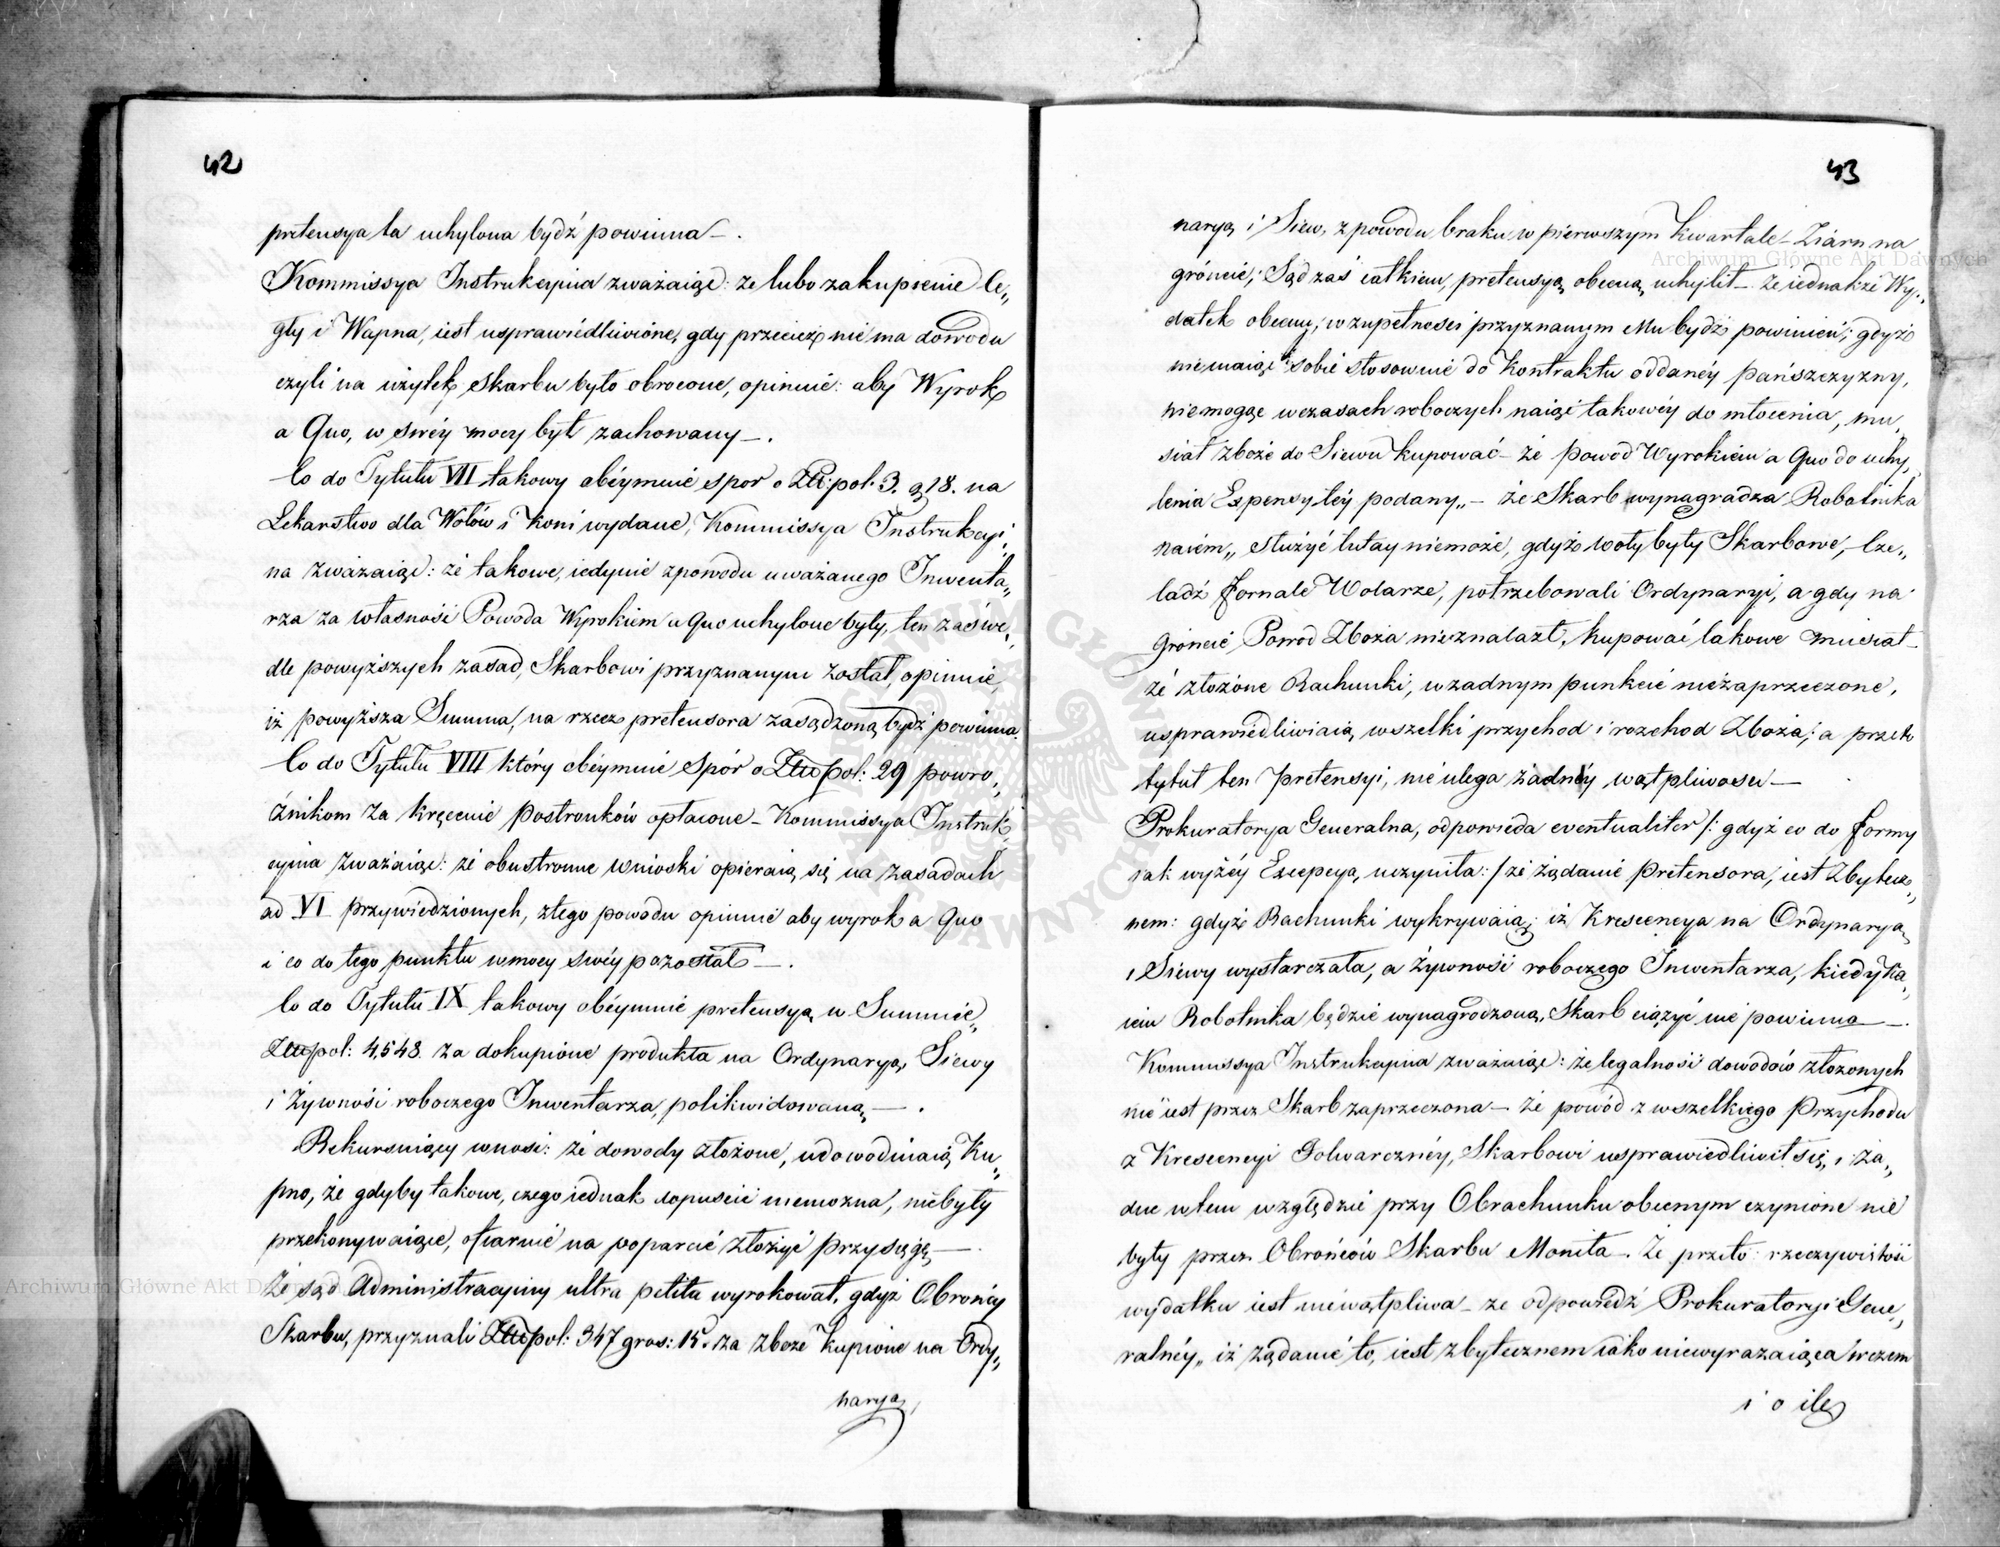 42
pretensya ta uchylona bydź powinna —.
Kommissya Instrukcyina zważaiąc: że lubo zakupienie Ce„
gły i Wapna, iest usprawiedliwione, gdy przecież nie ma dowodu
czyli na użytek Skarbu było obrocone, opiniuie: aby Wyrok
a Quo, w swéy mocy był zachowany —.
Co do Tytułu VII takowy obéymuie spor o Złł:pol: 3. g 18. na
Lekarstwo dla Wołów i Koni wydane, Kommissya Instrukcyi„
na zważaiąc: że takowe, iedynie z powodu uważanego Inwenta„
rza za własność Powoda Wyrokiem a Quo uchylone były, ten zaś we„
dle powyższych zasad, Skarbowi przyznanym został, opiniuie,
iż powyższa Summa, na rzecz pretensora zasądzoną bydź powinna.
Co do Tytułu VIII który obéymuie Spór o Złłpol: 29 powro„
źnikom za kręcenie Postronków opłacone — Kommissya Instruk„
cyina zważaiąc: że obustronne wnioski opieraią się na zasadach
ad VI przywiedzionych, z tego powodu opiniuie aby wyrok a Quo
i co do tego punktu w mocy swéy pozostał —.
Co do Tytułu IX takowy obéymuie pretensyą w Summie„
Złłpol: 4,548. za dokupione produkta na Ordynaryą, Siewy
i Żywność roboczego Inwentarza, polikwidowaną —.
Rekursuiący wnosi: że dowody złożone, udowodniaią Ku„
pno, że gdyby takowe, czego iednak dopuścić niemożna, niebyły
przekonywaiące, ofiaruie na poparcie złożyć przysięgę —.
Że sąd Administracyiny ultra petita wyrokował, gdyż Obrońcy
Skarbu, przyznali Złłpol: 347 gros: 15. za zboże kupione na Ordy„
naryą,
43
naryą i Siew, z powodu braku w pierwszym Kwartale Ziarn na
gróncie; Sąd zaś całkiem, pretensyą obecną, uchylił — Że iednakże Wy„
datek obecny, w zupełności przyznanym Mu bydź powinien; gdyż
niemaiąc sobie stosownie do Kontraktu oddanéy pańszczyzny,
niemogąc w czasach roboczych naiąć takowéy do młocenia, mu„
siał Zboże do Siewu kupować — że powód Wyrokiem a Quo do uchy„
lenia Expensy téy podany „— że Skarb wynagradza Robotnika
naiem„ służyć tutay niemoże, gdyż woły były Skarbowe, Cze„
ladź Fornale Wolarze, potrzebowali Ordynaryi, a gdy na
gróncie Powod Zboża nieznalazł, kupować takowe musiał —
że złożone Rachunki, w zadnym punkcie niezaprzeczone,
usprawiedliwiaią wszelki przychod i rozchod Zboża; a przeto
tytuł ten Pretensyi, nie ulega żadnéy wątpliwości —.
Prokuratorya Generalna, odpowieda eventualiter /: gdyż co do Formy
iak wyżéy Excepcyą, uczyniła :/ że żądanie Pretensora, iest Zbytecz„
nem: gdyż Rachunki wykrywaią, iż Krescencya na Ordynaryą
i Siewy wystarczała, a Żywność roboczego Inwentarza, kiedy ta
iem Robotnika będzie wynagrodzoną, Skarb ciążyć nie powinna —.
Kommissya Instrukcyina zważaiąc: że legalność dowodów złożonych
nie iest przez Skarb zaprzeczona — że powód z wszelkiego Przychodu
z Krescencyi Folwarcznéy, Skarbowi usprawiedliwił się, i ża„
dne w tem względzie przy Obrachunku obecnym czynione nie
były przez Obrońców Skarbu Monita. Że przeto: rzeczywistość
wydatku iest niewątpliwa — że odpowiedź Prokuratoryi Gene„
ralnéy„ iż żądanie to, iest zbytecznem iako niewyrazaiąca w czem
i o ile
Archiwum Główne Akt Dawnych
Archiwum Główne Akt Dawnych
ARCHIWUM GŁÓWNE AKT DAWNYCH